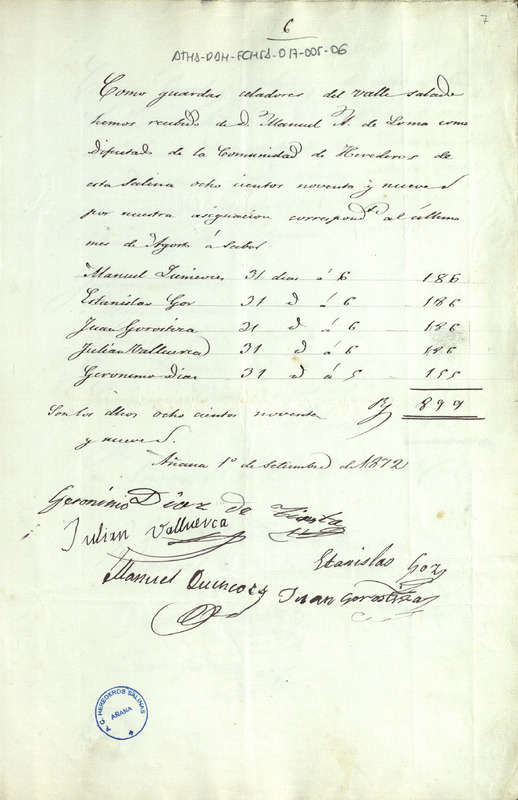 6
7
ATHA-DAH-FCHSA-017-005-06
Como guardas celadores del Valle salado
hemos recibido de D. Manuel A. de Loma como
Diputado de la Comunidad de Herederos de
esta Salina ocho cientos noventa y nueve
por nuestra asignacion correspond.te al último
mes de Agosto á saber
Manuel 31 dias á 6 186
Estanislao Goz 31 d á 6 186
Juan Gorostiza 31 d á 6 186
Julian Valluerca 31 d á 6 186
Geronimo Diaz 31 d á 5 155
Son los dhos ocho cientos noventa 899
y nueve
Añana 1º de Setiembre de 1872
Geronimo Diaz de
Julian Valluerca
Estanislao Goz
Manuel Quincoces
Juan Gorostiza
A. C. HEREDEROS SALINAS
AÑANA